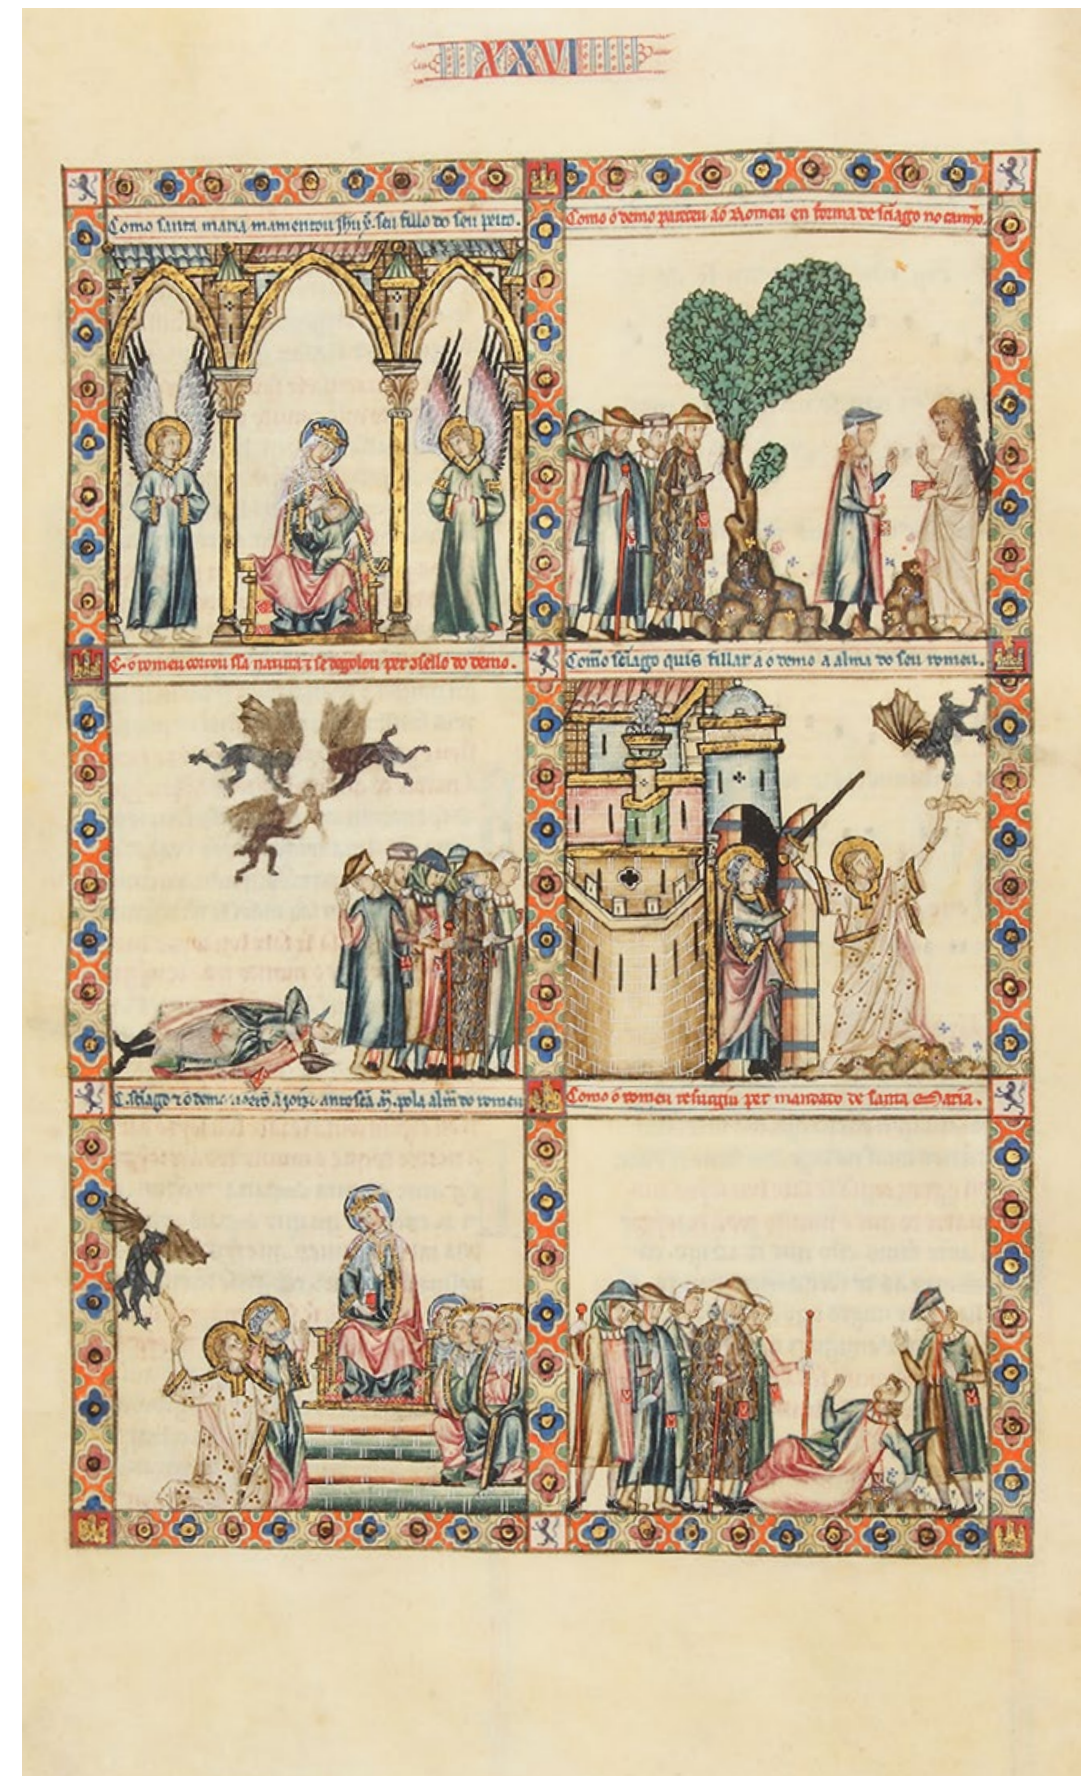 XXVI
Como santa maria mamentou ihu x̄. seu fillo do seu peito.
Como o demo pareceu ao Romeu en forma de sc̄iago no camỹo.
C. o romeu cortou ssa natura ⁊ se degolou per 9sello do demo.
Como sc̄iago quis fillar a o demo a alma do seu romeu.
C. sc̄iago ⁊ o demo a ante sc̄a m̄. pola alm̄ do romeu
Como o romeu resurgiu per mandado de santa Maria.